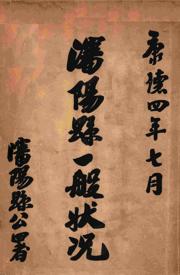 康德四年七月
瀋陽縣一般狀况
瀋陽縣公署